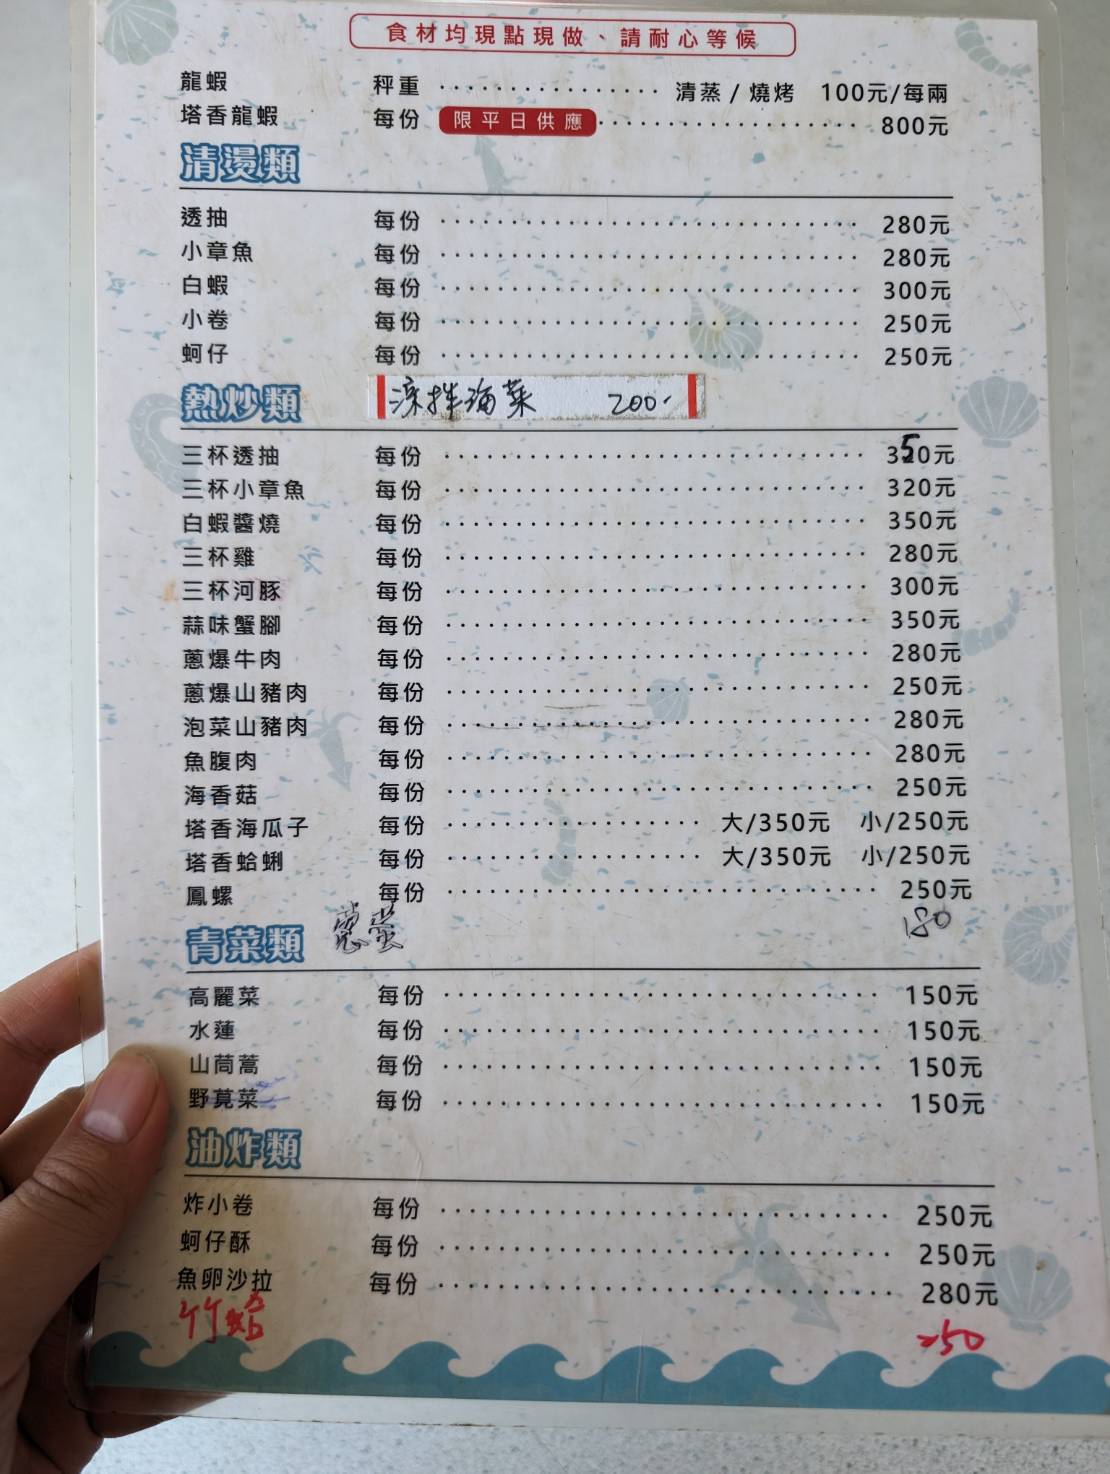 食材均現點現做、請耐心等候
龍蝦 秤重 清蒸/燒烤 100元/每兩
塔香龍蝦 每份 限平日供應 800元
清燙類
透抽 每份 280元
小章魚 每份 280元
白蝦 每份 300元
小卷 每份 250元
蚵仔 每份 250元
熱炒類 涼拌海菜 200.
三杯透抽 每份 350元
三杯小章魚 每份 320元
白蝦醬燒 每份 350元
三杯雞 每份 280元
三杯河豚 每份 300元
蒜味蟹腳 每份 350元
蔥爆牛肉 每份 280元
蔥爆山豬肉 每份 250元
泡菜山豬肉 每份 280元
魚腹肉 每份 280元
海香菇 每份 250元
塔香海瓜子 每份 大/350元 小/250元
塔香蛤蜊 每份 大/350元 小/250元
鳳螺 每份 250元
青菜類 蔥蛋 180
高麗菜 每份 150元
水蓮 每份 150元
山茼蒿 每份 150元
野莧菜 每份 150元
油炸類
炸小卷 每份 250元
蚵仔酥 每份 250元
魚卵沙拉 每份 280元
竹蛤 250